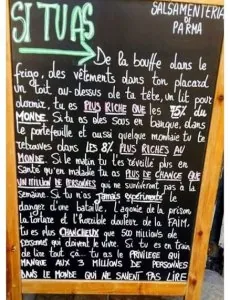 SI TU AS
SALSAMENTERIA
DI
PARMA
De la bouffe dans le
frigo, des vêtements dans ton placard
un toit au-dessus de ta tête, un lit pour
dormir, tu es PLUS RICHE QUE les 75% DU
MONDE. Si tu as des sous en banque, dans
le portefeuille et aussi quelque monnaie tu te
retrouves dans LES 8% PLUS RICHES AU
MONDE. Si le matin tu t'es réveillé plus en
santé qu'en maladie tu as PLUS DE CHANCE QUE
UN MILLION DE PERSONNES qui ne survivront pas à la
semaine. Si tu n'as Jamais expérimenté le
danger d'une bataille, l'agonie de la prison
la torture et l'horrible douleur de la FAIM,
tu es plus CHANCEUX que 500 millions de
personnes qui doivent le vivre. Si tu es en train
de lire tout ça.. tu as le PRIVILEGE QUI
MANQUE AUX 3 MILLIONS DE PERSONNES
DANS LE MONDE QUI NE SAVENT PAS LIRE